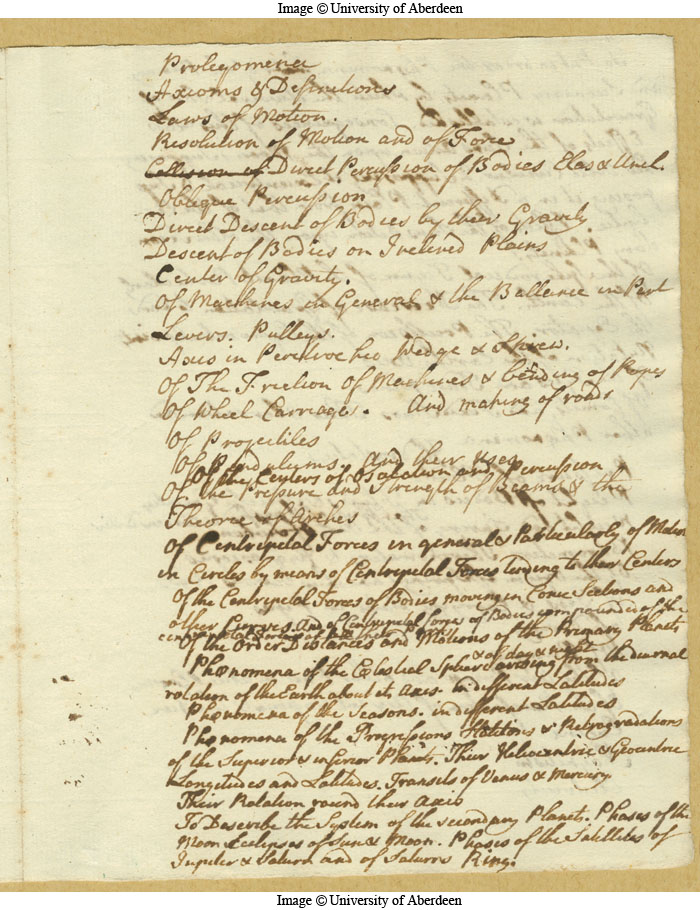 Image © University of Aberdeen
Prolegomena
Axioms & Definitions
Laws of Motion.
Resolution of Motion and of Force
Collision of Direct Percussion of Bodies Elas & Unel.
Oblique Percussion
Direct Descent of Bodies by their Gravity
Descent of Bodies on Inclined Plains
Center of Gravity.
Of Machines in General & the Ballance in Part
Levers. Pulleys.
Axis in Peritrochio Wedge & Skrew.
Of The Friction Of Machines & bending of Ropes
Of Wheel Carriages. And making of roads
Of Projectiles
Of Pendulums And their uses
Of the Centers of Oscilation and Percussion
Of the Pressure and Strength of Beams & the
Theorie of Arches
Of Centripetal Forces in general & Particularly of Motion
in Circles by means of Centripetal Forces tending to their Centers
Of the Centripetal Forces of Bodies moving in Conic Sections and
other Curves. And of Centripetal forces of Bodies compounded of the
centripetal forces of their
Of the Order Distances and Motions of the Primary Planets
& of day & night
Phænomena of the Cœlestial Sphere arising from the diurnal
rotation of the Earth about its Axis. in different Latitudes
Phænomena of the Seasons. in different Latitudes
Phænomena of the Progressions Stations & Retrogradations
of the Superior & inferior Planets. Their Heliocentric & Geocentric
Longitudes and Latitudes. Transits of Venus & Mercury
Their Rotation round their Axis
To Describe the System of the secondary Planets. Phases of the
Moon Eclipses of Sun & Moon. Phases of the Satellites of
Jupiter & Saturn and of Saturns Ring.
Image © University of Aberdeen